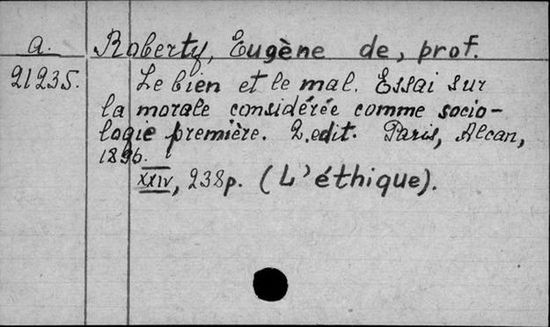 a. Roberty, Eugène de, prof.
21235. Le bien et le mal. Essai sur
la morale considérée comme socio-
logie première. 2.edit. Paris, Alcan,
1896.
XXIV, 238p. (L'éthique).